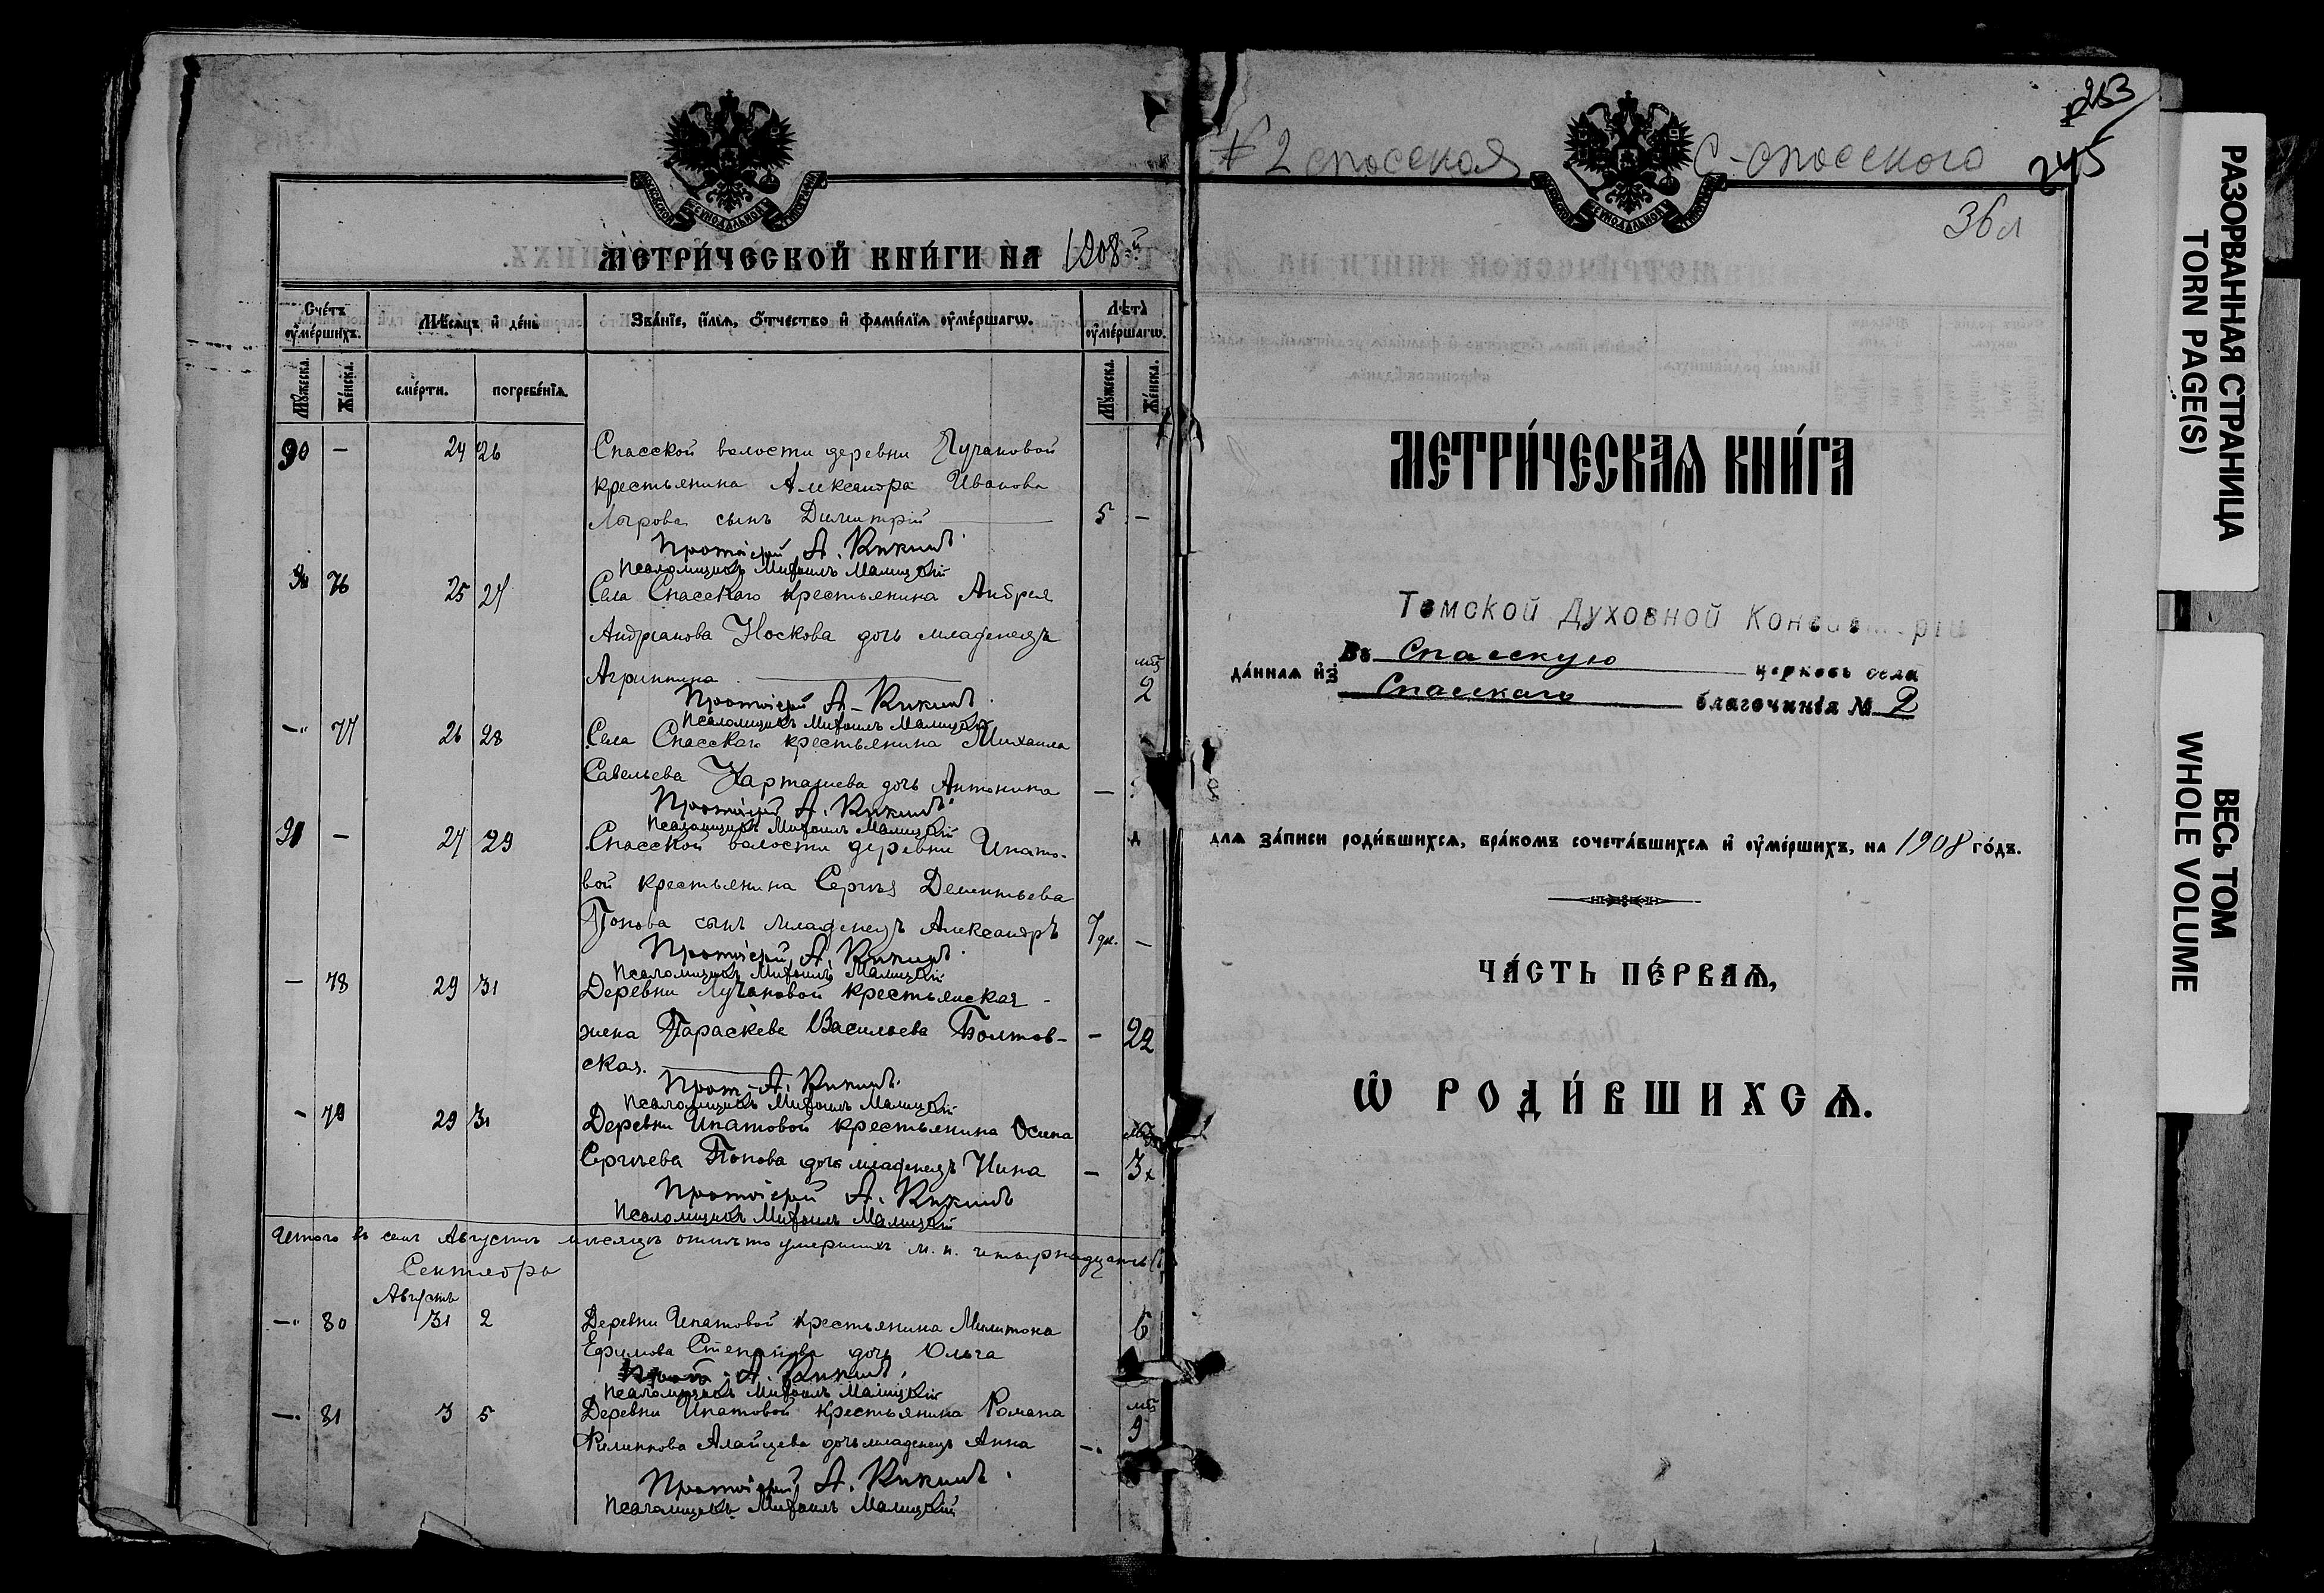 МЕТРИ́ЧЕСКОЙ КНИ́ГИ НА 1908-й
Сче́тъ оу҆ме́ршихъ.
Мѣ́сяцъ и҆ де́нь
Зва́нїе, и҆́мѧ, ѻ҆́тчество и҆ фами́лїѧ оу҆ме́ршагѡ.
Лѣ́та оу҆ме́ршагѡ.
Мꙋ́жеска.
Же́нска.
сме́рти.
погребе́нїѧ.
Мꙋ́жеска.
Же́нска.
90 - 24 26 Спасской волости деревни Лучановой
крестьянина Александра Иванова
сынъ Димитрій 5 -
Протоіерей А. Кикинъ.
Псаломщикъ Михаилъ Малицкій
76 25 27 Села Спасскаго крестьянина Андрея
Андріанова Носкова дочь младенецъ
Агриппина мѣс 2
Протоіерей А. Кикинъ.
Псаломщикъ Михаилъ Малицкій
-" 77 26 28 Села Спасскаго крестьянина Михаила
Савельева Карташева дочь Антонина -
Протоіерей А. Кикинъ.
Псаломщикъ Михаилъ Малицкій
91 - 27 29 Спасской волости деревни Ипато-
вой крестьянина Сергѣя Дементьева
Попова сынъ младенецъ Александръ 7 дн. -
Протоіерей А. Кикинъ.
Псаломщикъ Михаилъ Малицкій
- 78 29 31 Деревни Лучановой крестьянская
жена Параскева Васильева Болтов- - 22
ская.
Прот. А. Кикинъ.
Псаломщикъ Михаилъ Малицкій
- 79 29 31 Деревни Ипатовой крестьянина Осипа
Сергѣева Попова дочь младенецъ Нина - 3
Протоіерей А. Кикинъ
Псаломщикъ Михаилъ Малицкій
Итого въ семъ Августѣ мѣсяцѣ умершихъ м. п. четырнадцать
Сентябрь
Августъ
-" 80 31 2 Деревни Ипатовой крестьянина Милитона 6
Ефимова Степанова дочь Ольга
Прот. А. Кикинъ.
Псаломщикъ Михаилъ Малицкій
-" 81 3 5 Деревни Ипатовой крестьянина Романа мѣс
Филиппова Алайцева дочь младенецъ Анна -" 9
Протоіерей А. Кикинъ.
Псаломщикъ Михаилъ Малицкій
253
№ 2 спасская С-спасского 245
36 л
МЕТРИ́ЧЕСКАѦ КНИ́ГА
Томской Духовной Консисторіи
да́ннаѧ и҆з̾ Въ Спасскую церковь села
Спасскаго благочинія № 2
для за́писи роди́вшихсѧ, бра́комъ сочета́вшихсѧ и҆ оу҆ме́ршихъ, на 1908 го́дъ.
ЧА́СТЬ ПЕ́РВАѦ,
Ѽ РОДИ́ВШИХСѦ.
РАЗОРВАННАЯ СТРАНИЦА
TORN PAGE(S)
ВЕСЬ ТОМ
WHOLE VOLUME